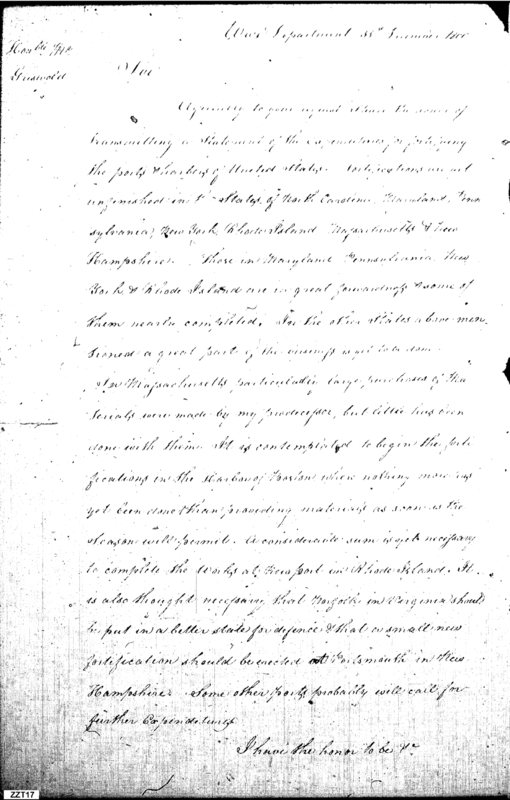 War Department 1800
Honble Mr
Griswold
Sir
Agreeably to your request I have the honor of
transmitting a Statement of the expenditures for fortifying
the ports & harbors of United States. Fortifications are yet
unfinished in ye States of North Carolina, Maryland, Penn
sylvania, New York, Rhode Island Massachusetts & New
Hampshire. Those in Maryland Pennsylvania New
York & Rhode Island are in great forwardness & some of
them nearly completed. In the other States above men
tioned a great part of the business is yet to be done
In Massachusetts particularly large purchases of Ma
terials were made by my predecessor, but little has been
done with them. It is contemplated to begin the forti
fications in the Harbor of Boston where nothing more has
yet been done than providing materials as soon as the
Season will permit. A considerable sum is yet necessary
to complete the Works at Newport in Rhode Island. It
is also thought necessary that Norfolk in Virginia should
be put in a better state for defence & that a small new
fortification should be erected at Portsmouth in New
Hampshire. Some other Ports probably will call for
further Expenditures
I have the honor to be &c
ZZT17